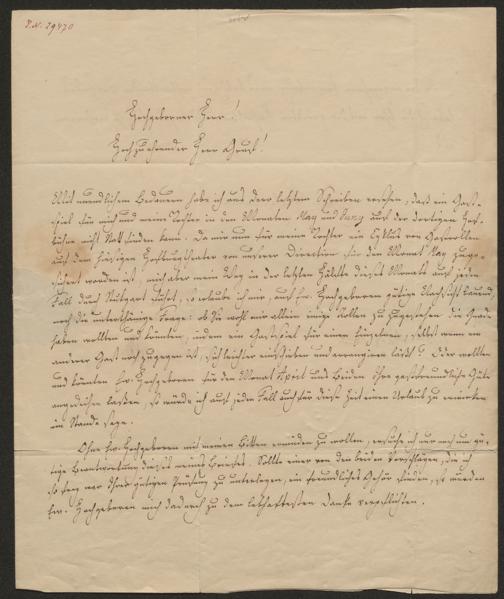 I.N. 29470
Hochgeborner Herr!
Hochzuehrender Herr Graf!
Mit unendlichem Bedauern habe ich aus dero letztem Schreiben ersehen, daß ein Gast-
spiel für mich und meine Tochter in den Monaten May und Juny auf der dortigen Hof-
bühne nicht Statt finden kann. Da mir nun für meine Tochter ein Cyklus von Gastrollen
auf dem hiesigen Hoftheater von unserer Direction für den Monat May zuge-
sichert worden ist, mich aber mein Weg in der letzten Hälfte dieses Monats auf jeden
Fall durch Stuttgart führt, so erlaube ich mir, auf Ew. Hochgeboren gütige Nachsicht bauend,
noch die unterthänige Frage: ob Sie wohl mir allein einige Rollen zu zugestehen die Gnade
haben wollten und könnten, indem ein Gastspiel für einen Einzelnen, selbst wenn ein
anderer Gast noch zugegen ist, sich leichter einschieben und arrangiren läßt? Oder wollten
und könnten Ew. Hochgeboren für den Monat April uns beiden Ihre gastfreundliche Güte
angedeihen lassen, so würde ich auf jeden Fall auch für diese Zeit einen Urlaub zu erwirken
im Stande seyn.
Ohne Ew. Hochgeboren mit meinen Bitten ermüden zu wollen, ersuche ich nur noch um gü-
tige Beantwortung dieses meines Briefes. Sollte einer von den beiden Vorschlägen, die ich
so frey war Ihrer gütigen Prüfung zu unterlegen, ein freundliches Gehör finden, so würden
Ew. Hochgeboren mich dadurch zu dem lebhaftesten Danke verpflichten.